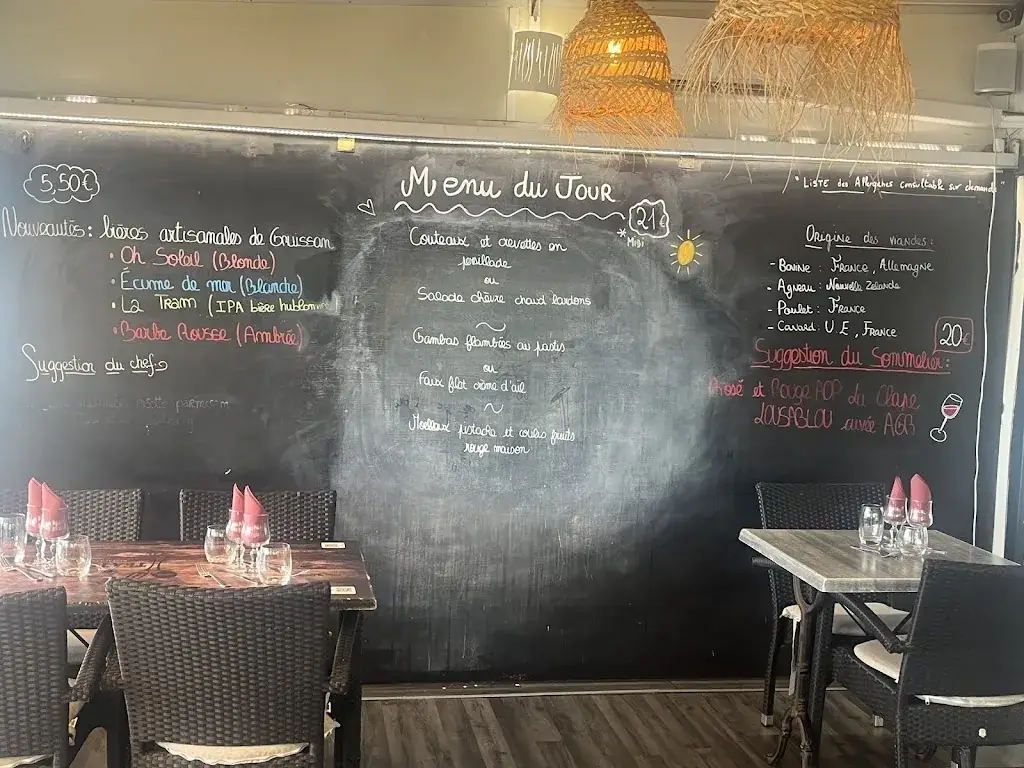 5,50€
Nouveautés: bières artisanales de Gruissan
• Oh Soleil (Blonde)
• Écume de mer (Blanche)
• La Tram (IPA bière
• Barbe Rousse (Ambrée)
Suggestion du chef
Menu du Jour
21
* Midi
Couteaux et crevettes en
persillade
ou
Salade chèvre chaud lardons
~
Gambas flambées au pastis
ou
Faux filet crème d'ail
~
Moelleux pistache et coulis fruits
rouge maison
"Liste des Allergènes consultable sur demande"
Origine des viandes:
- Bovine : France, Allemagne
- Agneau : Nouvelle Zelande
- Poulet : France
- Canard : U.E, France
20€
Suggestion du Sommelier:
Rosé et Rouge AOP La Clape